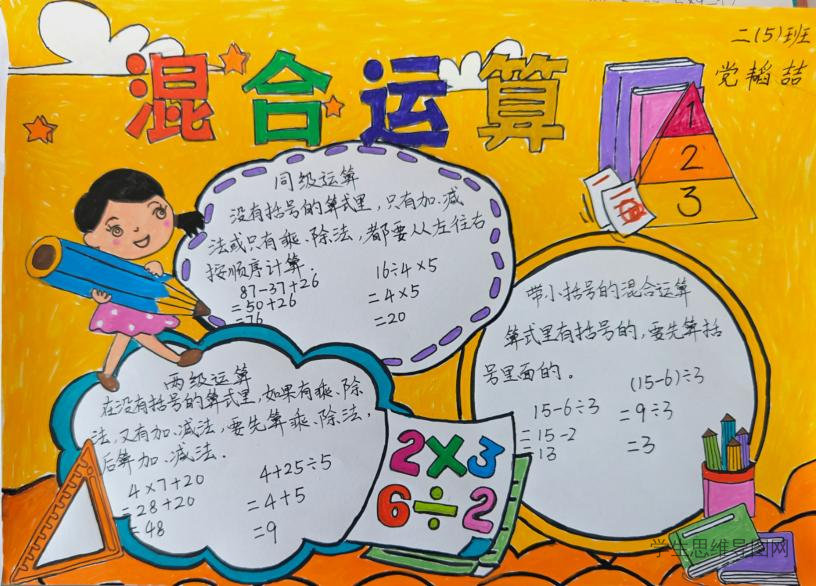 二(5)班
党韬喆
混合运算
1
2
3
同级运算
没有括号的算式里，只有加、减
法或只有乘、除法，都要从左往右
按顺序计算．
87-37+26
=50+26
=76
16÷4×5
=4×5
=20
带小括号的混合运算
算式里有括号的，要先算括
号里面的。
15-6÷3
=15-2
=13
(15-6)÷3
=9÷3
=3
两级运算
在没有括号的算式里，如果有乘、除
法，又有加、减法，要先算乘、除法，
后算加、减法．
4×7+20
=28+20
=48
4+25÷5
=4+5
=9
2×3
6÷2
学生思维导图网